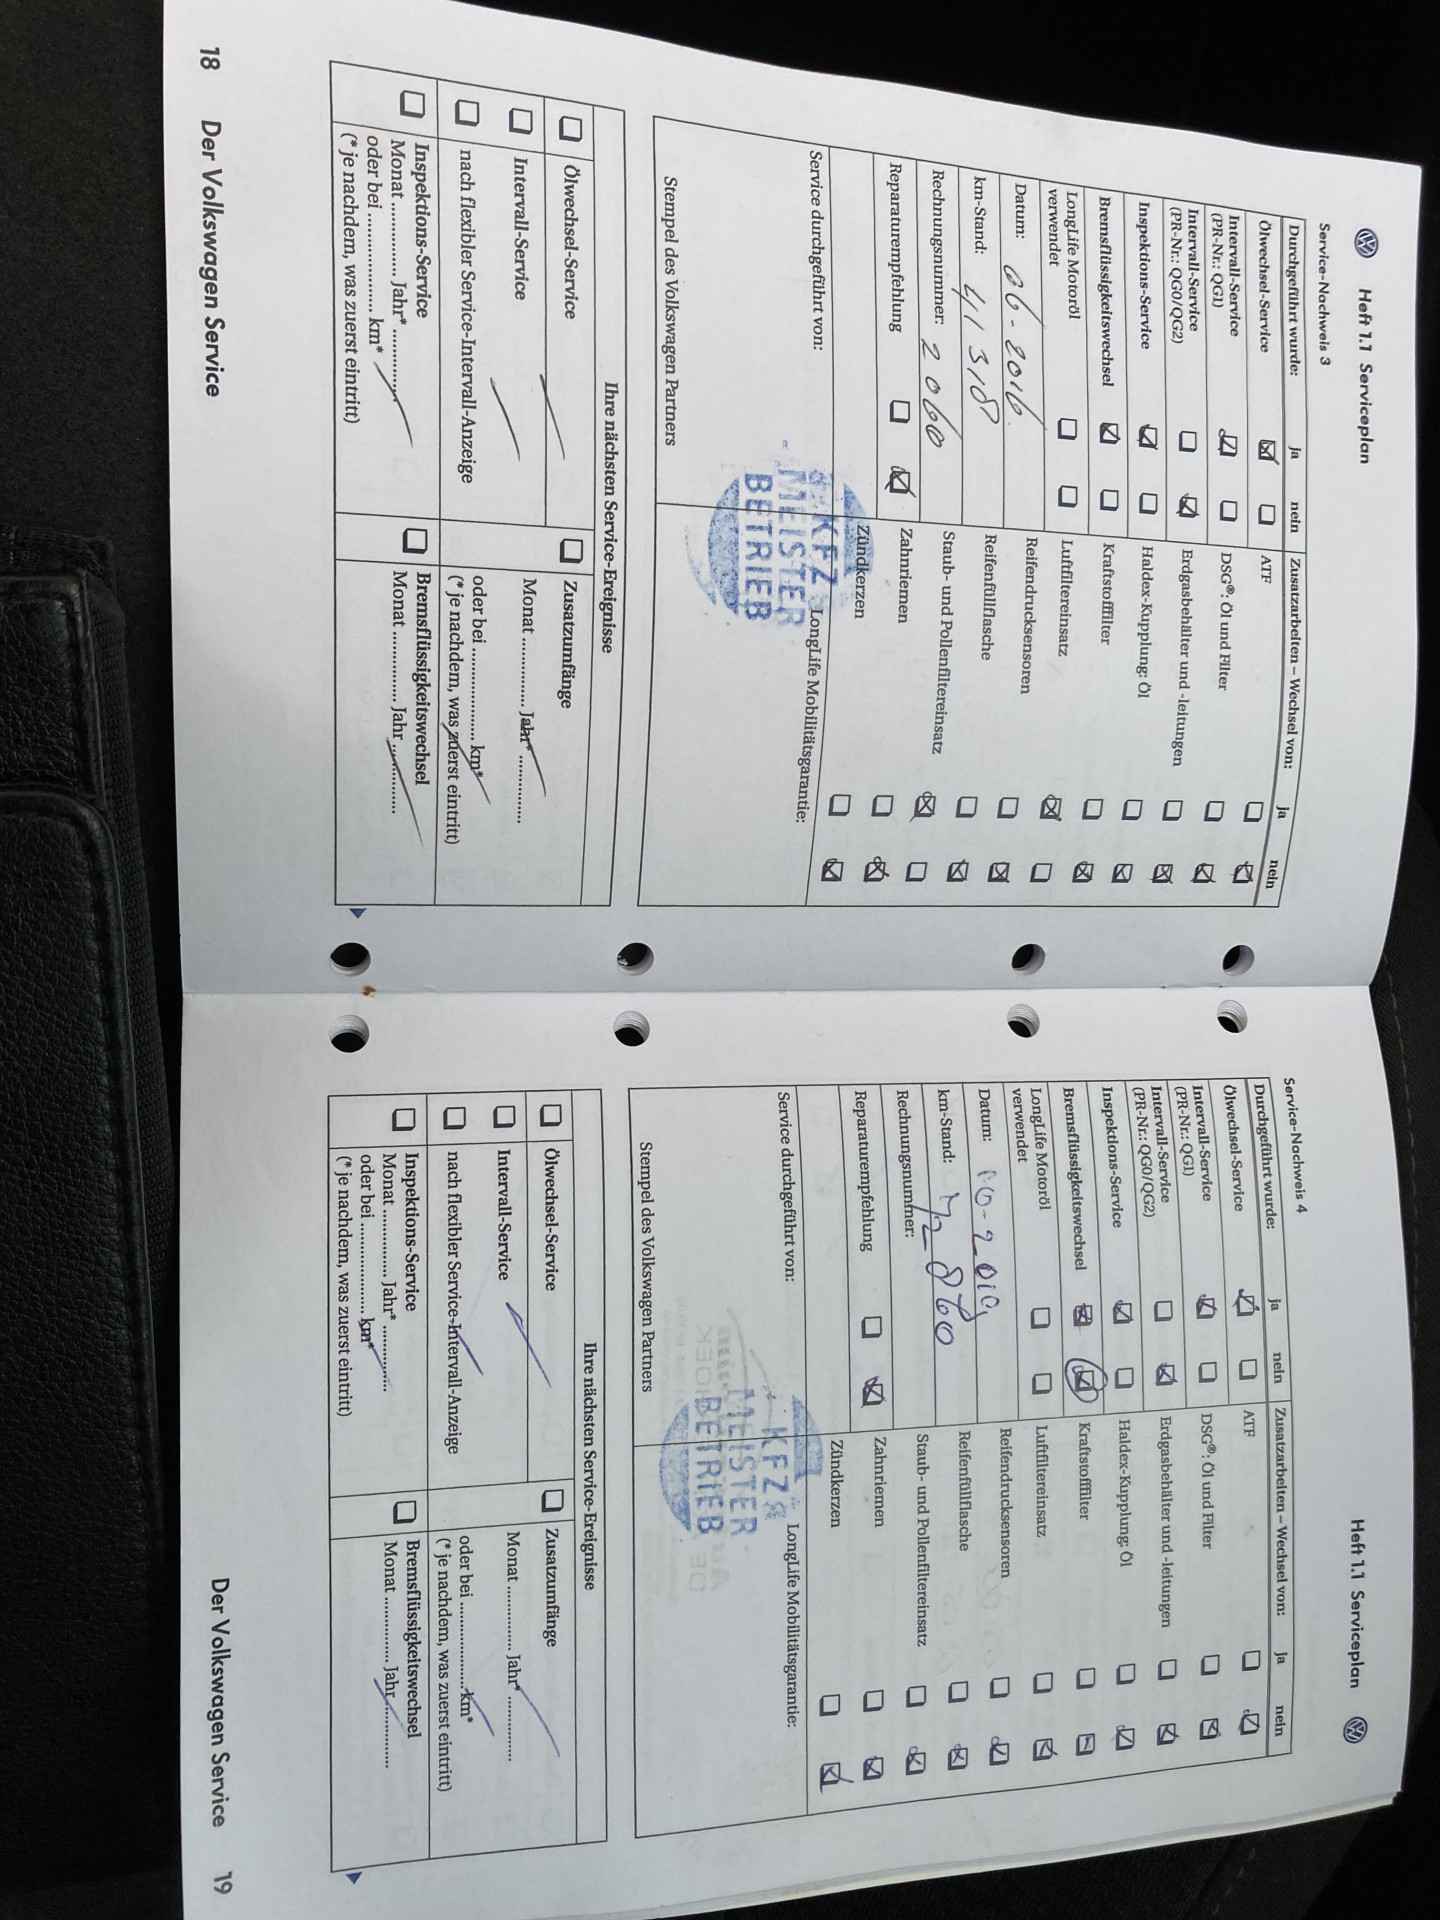 Heft 1.1 Serviceplan
Service-Nachweis 3
Durchgeführt wurde: ja nein
Ölwechsel-Service
Intervall-Service
(PR-Nr.: QG1)
Intervall-Service
(PR-Nr.: QG0/QG2)
Inspektions-Service
Bremsflüssigkeitswechsel
LongLife Motoröl
verwendet
Datum: 06-2016
km-Stand: 41318
Rechnungsnummer: 2060
Reparaturempfehlung
Zusatzarbeiten – Wechsel von: ja nein
ATF
DSG®: Öl und Filter
Erdgasbehälter und -leitungen
Haldex-Kupplung: Öl
Kraftstofffilter
Luftfiltereinsatz
Reifendrucksensoren
Reifenfüllflasche
Staub- und Pollenfiltereinsatz
Zahnriemen
Zündkerzen
Service durchgeführt von:
LongLife Mobilitätsgarantie:
KFZ
MEISTER
BETRIEB
Stempel des Volkswagen Partners
Ihre nächsten Service-Ereignisse
Ölwechsel-Service
Intervall-Service
nach flexibler Service-Intervall-Anzeige
Inspektions-Service
Monat ............. Jahr* .............
oder bei .................... km*
(* je nachdem, was zuerst eintritt)
Zusatzumfänge
Monat ............. Jahr* .............
oder bei .................... km*
(* je nachdem, was zuerst eintritt)
Bremsflüssigkeitswechsel
Monat ............. Jahr .............
18 Der Volkswagen Service
Heft 1.1 Serviceplan
Service-Nachweis 4
Durchgeführt wurde: ja nein
Ölwechsel-Service
Intervall-Service
(PR-Nr.: QG1)
Intervall-Service
(PR-Nr.: QG0/QG2)
Inspektions-Service
Bremsflüssigkeitswechsel
LongLife Motoröl
verwendet
Datum:
km-Stand: 72860
Rechnungsnummer:
Reparaturempfehlung
Zusatzarbeiten – Wechsel von: ja nein
ATF
DSG®: Öl und Filter
Erdgasbehälter und -leitungen
Haldex-Kupplung: Öl
Kraftstofffilter
Luftfiltereinsatz
Reifendrucksensoren
Reifenfüllflasche
Staub- und Pollenfiltereinsatz
Zahnriemen
Zündkerzen
Service durchgeführt von:
LongLife Mobilitätsgarantie:
KFZ
MEISTER
BETRIEB
Stempel des Volkswagen Partners
Ihre nächsten Service-Ereignisse
Ölwechsel-Service
Intervall-Service
nach flexibler Service-Intervall-Anzeige
Inspektions-Service
Monat ............. Jahr* .............
oder bei .................... km*
(* je nachdem, was zuerst eintritt)
Zusatzumfänge
Monat ............. Jahr* .............
oder bei .................... km*
(* je nachdem, was zuerst eintritt)
Bremsflüssigkeitswechsel
Monat ............. Jahr .............
Der Volkswagen Service 19